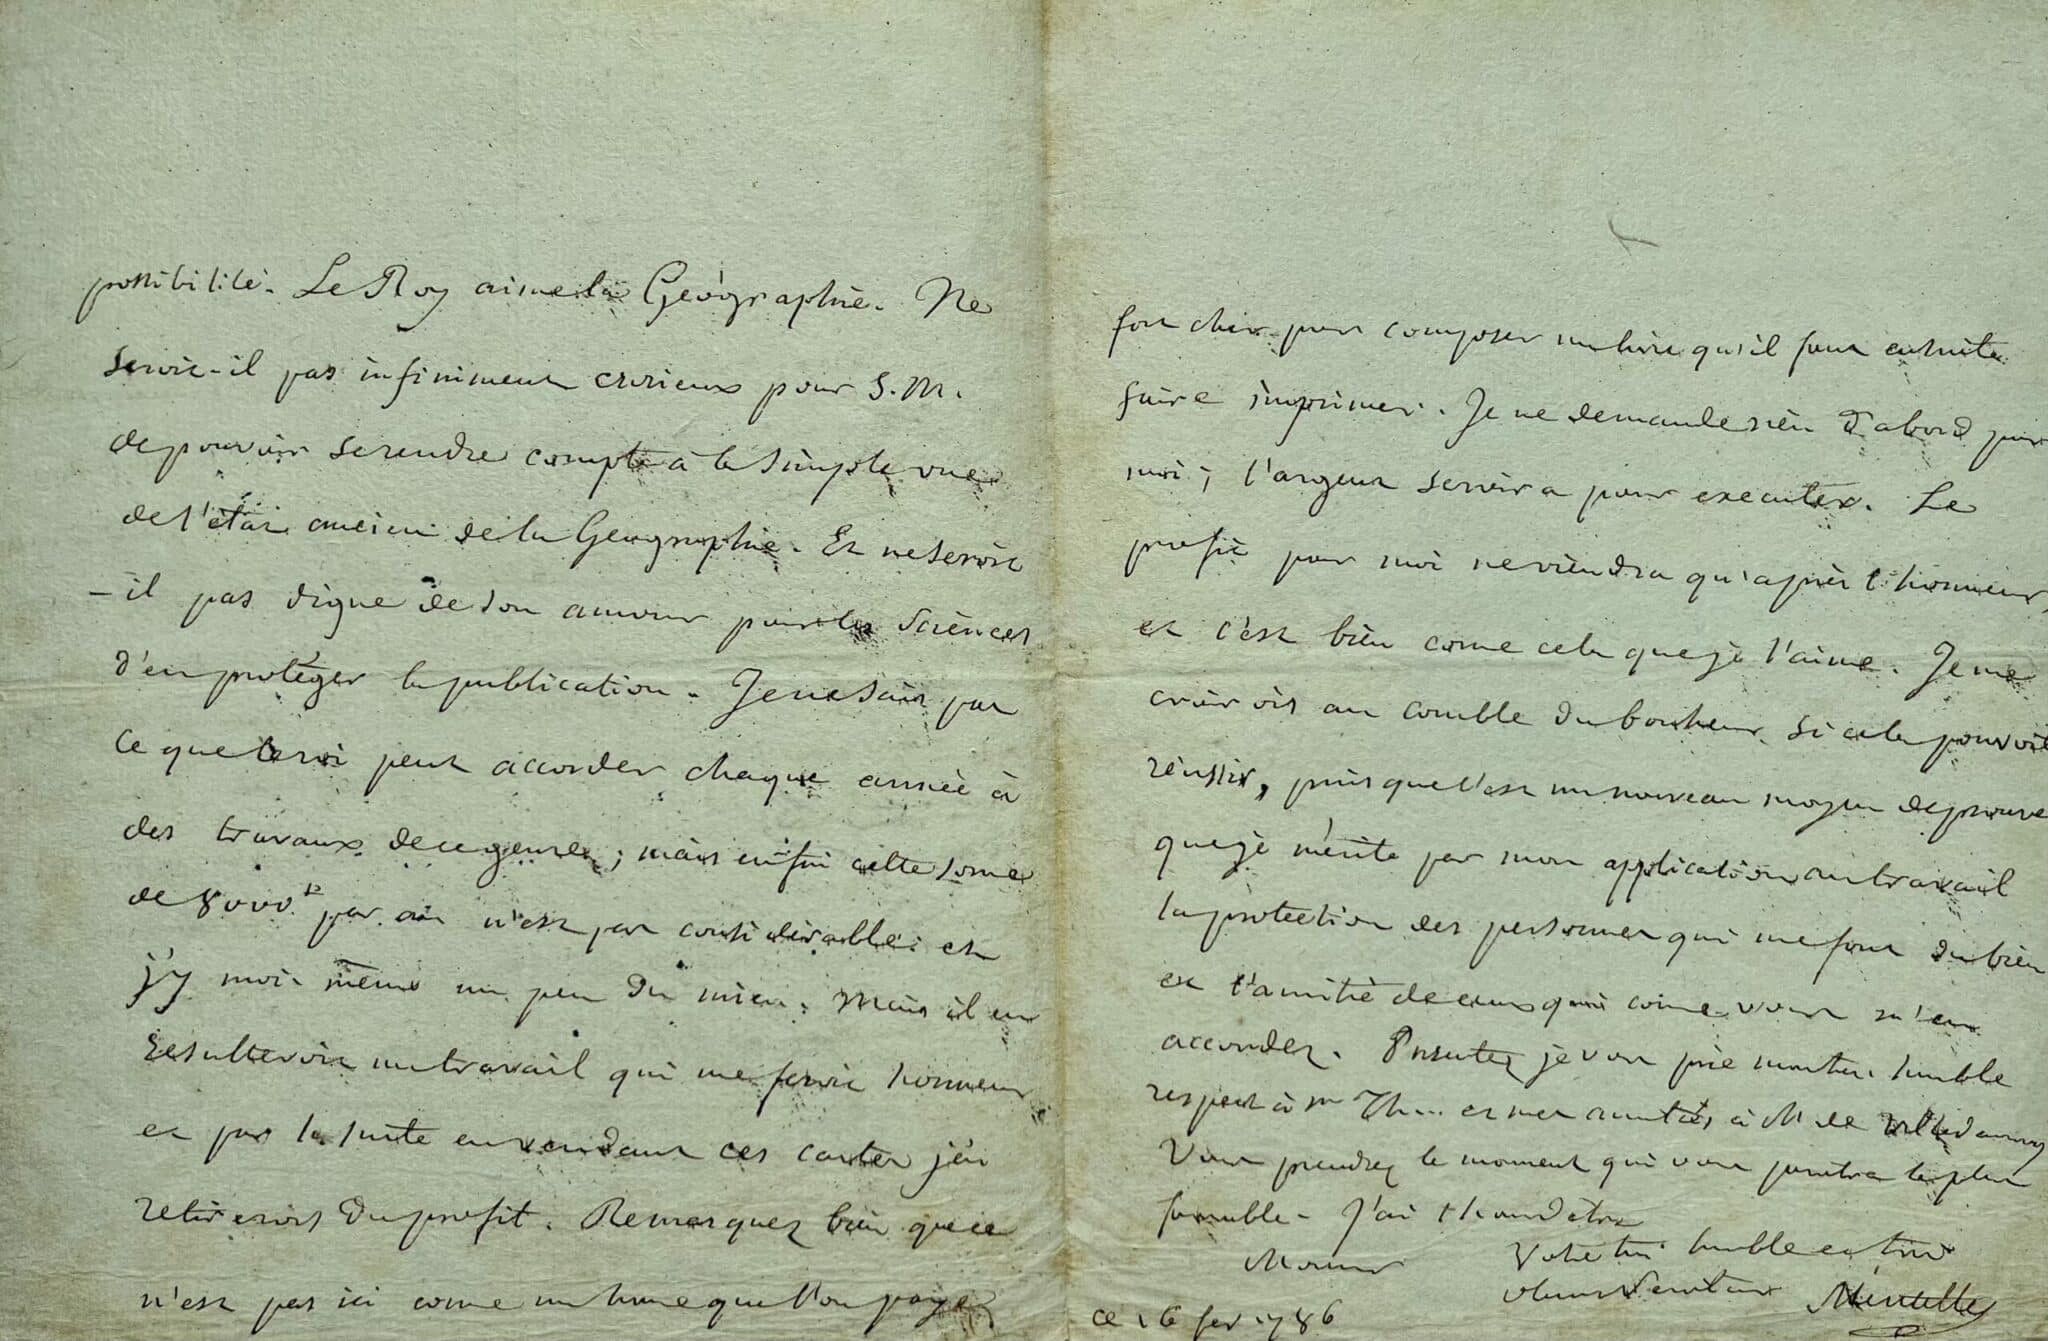 possibilité. Le Roy aime la Géographie. Ne
seroit-il pas infiniment curieux pour S. M.
de pouvoir se rendre compte à la simple vue
de l'état ancien de la Géographie. Et ne seroit
-il pas digne de son amour pour les Sciences
d'en protéger la publication. Je ne sais pas
ce que le roi peut accorder chaque année à
des travaux de ce genre; mais enfin cette some
de 8000 par an n'est pas considérable: et
j'y moi-même un peu du mien. Mais il en
resulteroit un travail qui me feroit honneur
et par la suite en vendant ces cartes j'en
retirerois du profit. Remarquez bien que ce
n'est pas ici come un livre que l'on paye
fort cher pour composer un livre qu'il faut ensuite
faire imprimer. Je ne demande rien d'abord pour
moi; l'argent servira pour executer. Le
profit pour moi ne viendra qu'après l'honneur,
et c'est bien come cela que je l'aime. Je me
croirois au comble du bonheur si cela pouvoit
réussir, puisque c'est un nouveau moyen de prouver
que je mérite par mon application au travail
la protection des personnes qui me font du bien
et l'amitié de ceux qui come vous m'en
accordez. Presentez je vous prie mon très humble
respect à Mr Th... et mes amitiés à M de
Vous prendrez le moment qui vous paroitra le plus
favorable. J'ai l'hon d'être
Monsieur Votre très humble et très
obéissant Serviteur Mentelle
ce 16 fev. 1786